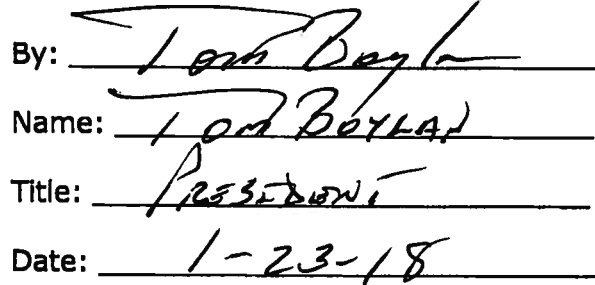 By: Tom Boylan
Name: TOM BOYLAN
Title: PRESIDENT
Date: 1-23-18